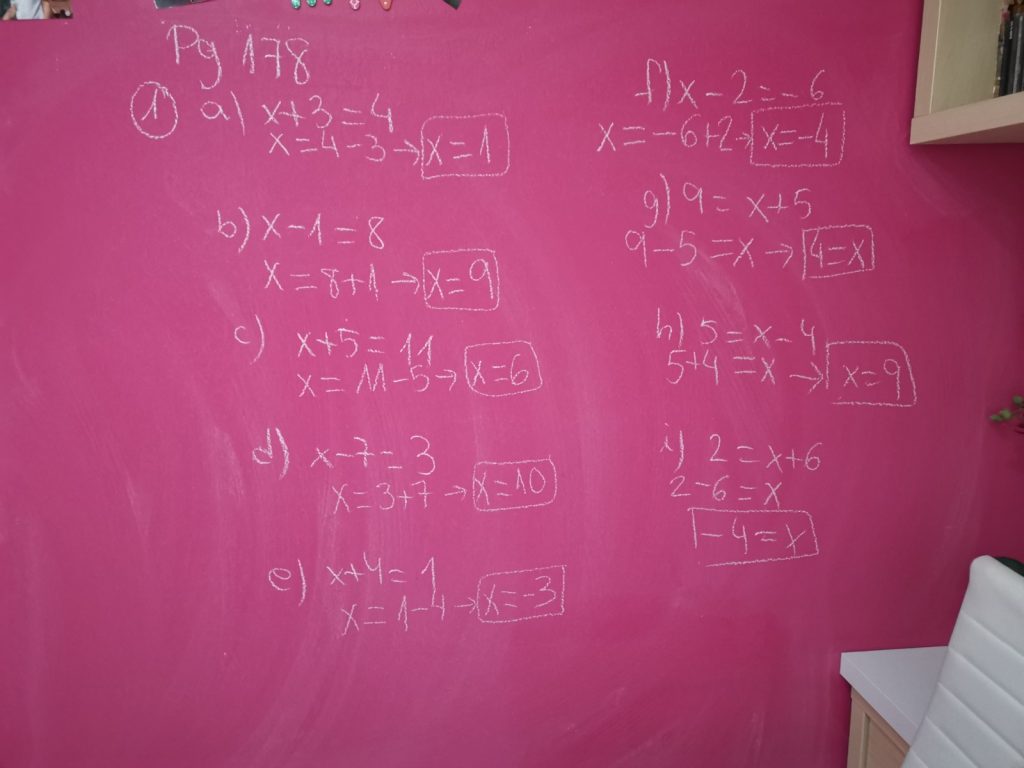 Pg 178
① a) x+3=4
x=4-3→x=1
b) x-1=8
x=8+1→x=9
c) x+5=11
x=11-5→x=6
d) x-7=3
x=3+7→x=10
e) x+4=1
x=1-4→x=-3
f) x-2=-6
x=-6+2→x=-4
g) 9=x+5
9-5=x→4=x
h) 5=x-4
5+4=x→x=9
i) 2=x+6
2-6=x
-4=x